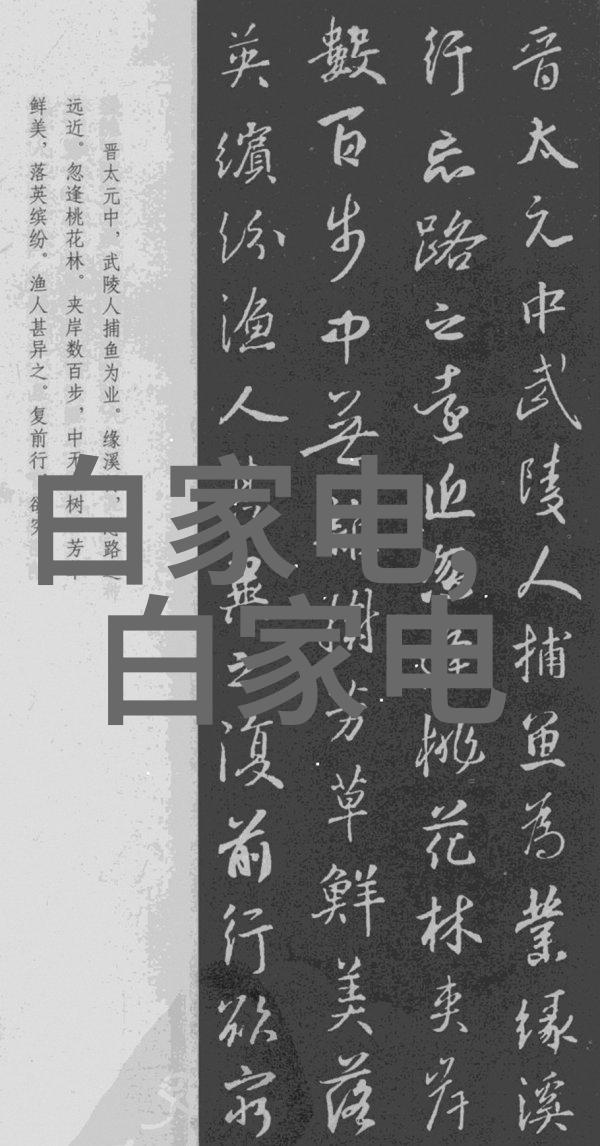 晋太元中武陵人捕鱼为業缘溪
行忘路之遠近忽逢桃花林夹岸
數百步中無雜樹芳草鮮美落
英繽纷渔人甚異之復前行欲穷
晋太元中，武陵人捕鱼为业。缘溪，路
远近。忽逢桃花林。夹岸数百步，中无树芳
鲜美，落英缤纷。渔人甚异之。复前行欲穷
白家电，
白家电